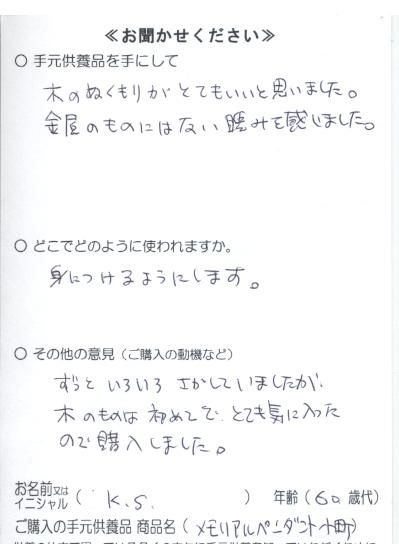 ≪お聞かせください≫
○ 手元供養品を手にして
木のぬくもりがとてもいいと思いました。
金属のものにはない暖みを感じました。
○ どこでどのように使われますか。
身につけるようにします。
○ その他の意見（ご購入の動機など）
ずっといろいろさがしていましたが
木のものは初めてで、とても気に入った
ので購入しました。
お名前又は
イニシャル（ K.S. ） 年齢（60歳代）
ご購入の手元供養品 商品名（メモリアルペンダント小町）